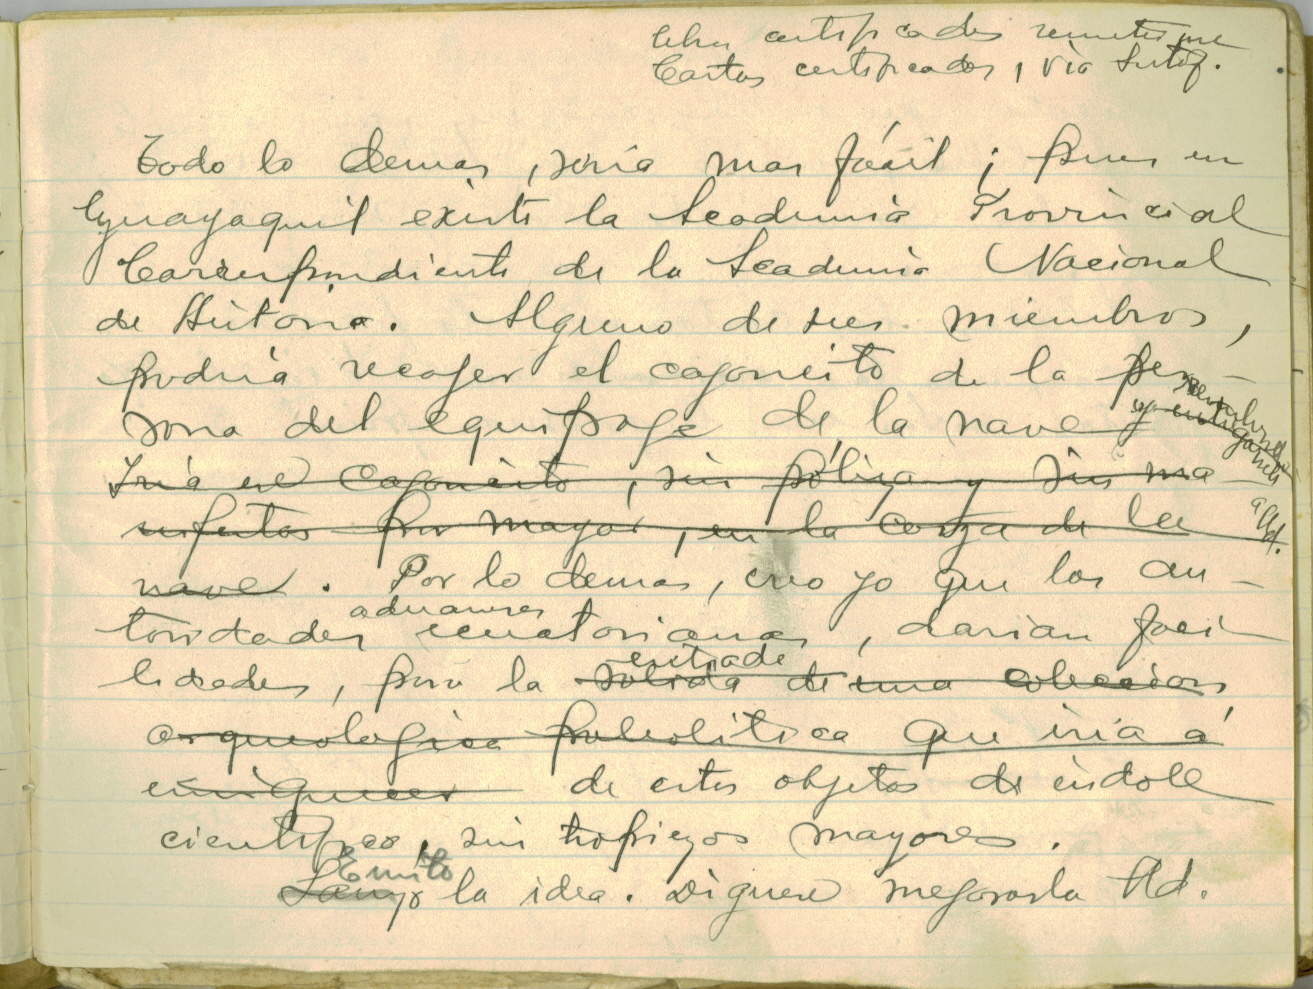 certificados remitirme
Cartas certificadas, vía
Todo lo demas, sería mas fácil; pues en
Guayaquil existe la Academia Provincial
Correspondiente de la Academia Nacional
de Historia. Alguno de sus miembros,
podría recojer el cajoncito de la per-
sona del equipaje de la nave y entregarselo
a Ud.
Iría ese cajoncito, sin póliza y sin ma
nifiestos por mayor, en la carga de la
nave. Por lo demas, creo yo que las au-
aduaneras
toridades ecuatorianas, darían faci-
entrada
lidades, para la salida de una coleccion
arqueologica paleolitica que iría á
enriquecer de estos objetos de indole
cientifica, sin tropiezos mayores.
Emito
Lanzo la idea. Dignese mejorarla Ud.